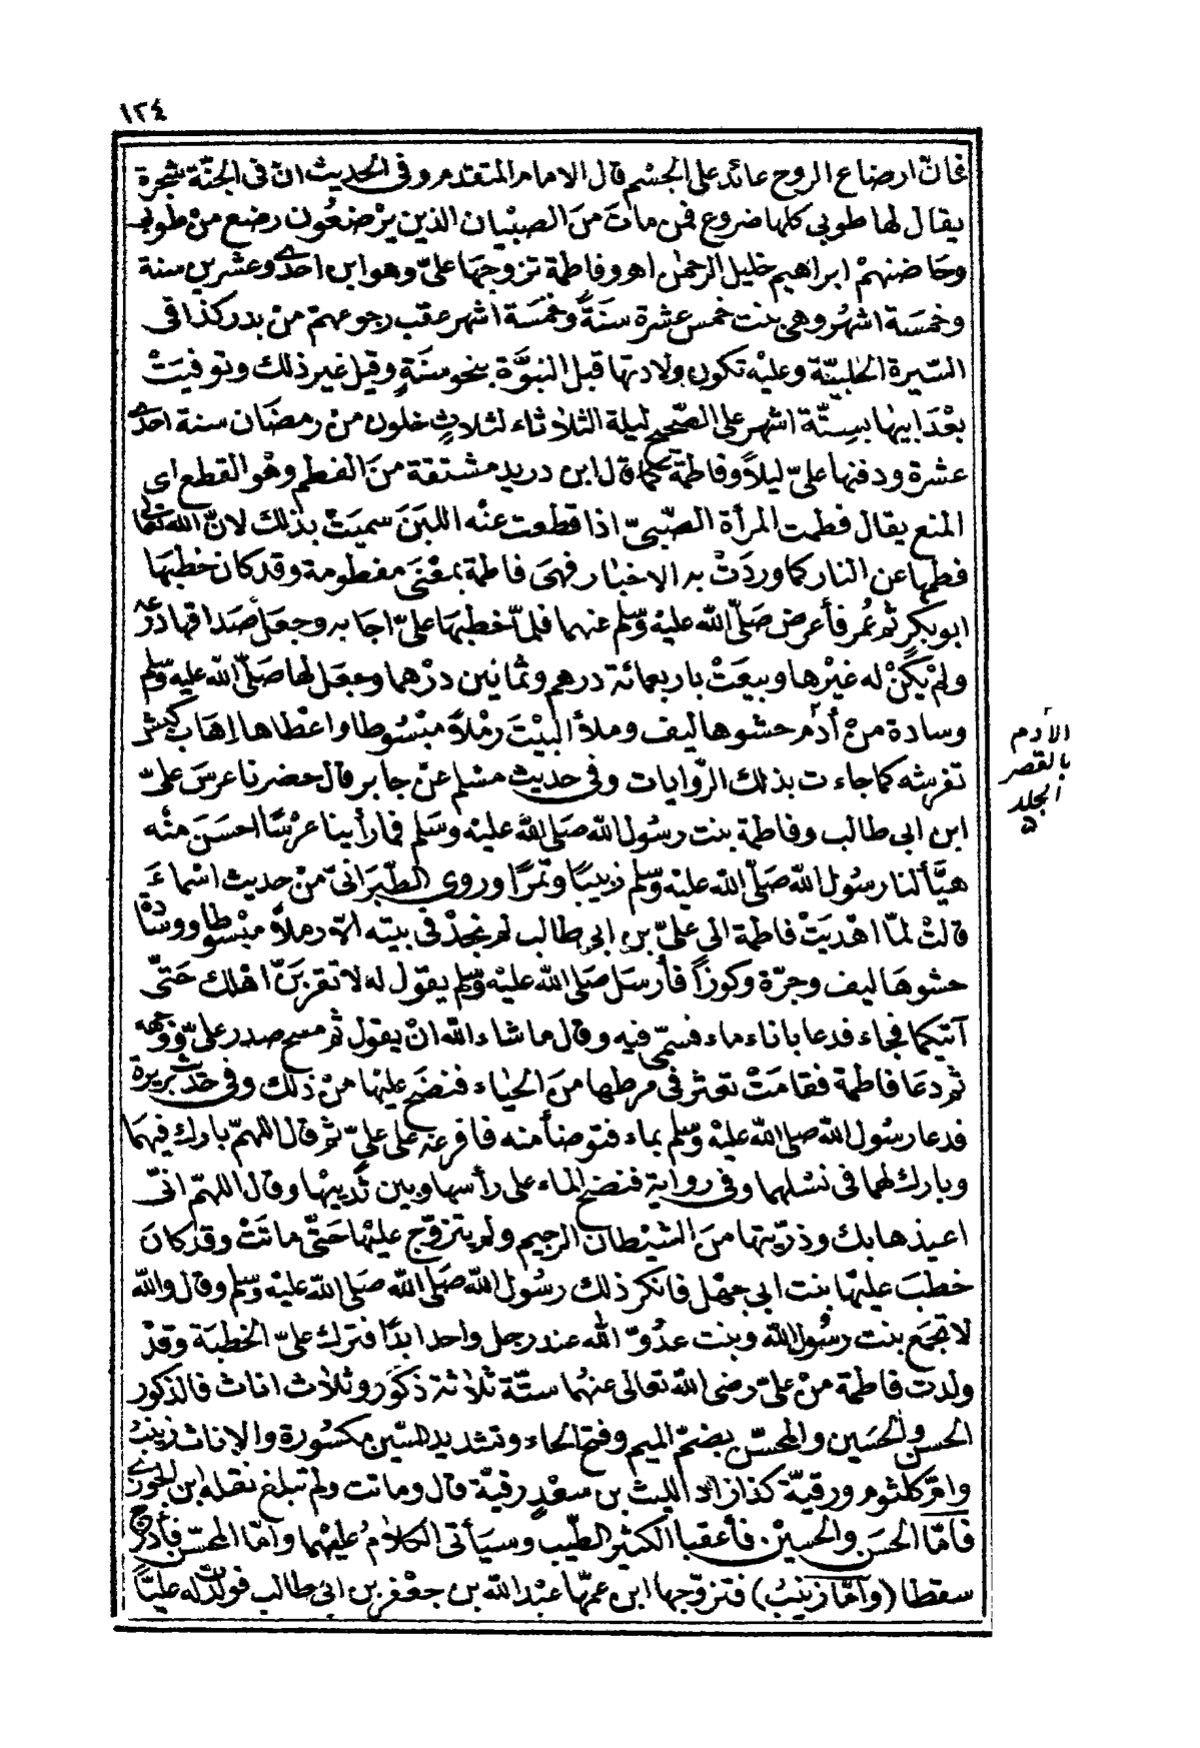 ١٢٤
فان ارضاع الروح عائد على الجسْم قال الامام المتقدم وفى الحديث انّ فى الجنّة شجرة
يقال لها طوبى كلها ضروع فمن ماتَ منَ الصبْيان الذين يرْضعُون رضع منْ طوبى
وحاضنهمْ ابراهيم خليل الرحمن اهـ وفاطمة تزوجها علىّ وهو ابن احدى وعشرين سنة
وخمسَة اشهُر وهى بنت خمس عشرة سنَةً وخمسَة اشهر عقب رجوعهمْ منْ بدر كذا فى
السّيرة الحلبيّة وعليْه تكون ولادتها قبل النبوَّة بنحو سَنَةٍ وقيل غير ذلك وتوفيَتْ
بعْدَ ابيها بسِتّة اشهر على الصّحيح ليلة الثلاثاء لثلاثٍ خلون منْ رمضَان سنة احدى
عشرة ودفنها علىّ ليلاً وفاطمة كما قال ابن دريد مشتقة منَ الفطم وهْو القطع اى
المنع يقال فطمت المرأة الصّبىّ اذا قطعت عنْه اللبَنَ سميَتْ بذلك لانّ الله تعالى
فطمها عن النار كما وردَتْ به الاخبار فهىَ فاطمة بمعْنَى مفطومة وقد كان خطبَها
ابو بكرٍ ثم عُمر فأعرض صَلّى الله عليْه وسّلم عنهما فلمّا خطبَها علىّ اجابه وجعَل صَداقها درْعه
ولمْ يكُنْ له غيْرها وبيعَتْ باربعمائة درهم وثمانين درْهما وجعَل لها صَلّى الله عليْه وسّلم
وسادة منْ أدَم حشوها ليف وملأ البيْتَ رمْلاً مبْسُوطا واعْطاها اِهَاب كبْش
تفرشه كما جاءت بذلك الرّوايات وفى حديث مسْلم عنْ جابر قال حضرنا عرسَ علىّ
ابن ابى طالب وفاطمة بنت رسُول الله صَلى الله عليْه وسَلم فما رأينا عرْسًا احسَنَ منْه
هيَّأ لنا رسُول الله صَلّى الله عليْه وسّلم زبيبًا وتمْرًا وروى الطّبَرَانىّ منْ حديث اسْماءَ
قالتْ لمّا اهْديَتْ فاطمة الى علىّ بن ابى طالب لم نجدْ فى بيْته الاّ رملاً مبْسوطا ووسَادة
حشوهَا ليف وجرّة وكوزًا فأرسَل صَلى الله عليْه وسّلم يقول له لا تقربَنّ اهْلك حَتّى
آتيكما فجاء فدعا باناء ماء فسمّى فيه وقال ما شاء الله انْ يقول ثم مسح صدر علىّ ووجهه
ثم دعَا فاطمة فقامَتْ تعثر فى مرطها منَ الحيَاء فنضحَ عليْها منْ ذلك وفى حديث بريرة
فدعا رسُول الله صلى الله عليْه وسّلم بماء فتوضأ منه فافرغه على علىّ ثم قال اللهمّ بارك فيهمَا
وبارك لهما فى نسْلهما وفى رواية فنضح الماء على رأسها وبين ثدييْها وقال اللهمّ انّى
اعيذها بك وذرّيتها منَ الشيْطان الرجيم ولم يتزوّج عليْها حَتّى ماتَتْ وقد كانَ
خطبَ عليْها بنت ابى جهْل فانكر ذلك رسُول الله صَلى الله صَلى الله عليْه وسّلم وقال والله
لا تجمَع بنت رسُول الله وبنت عدُوّ الله عند رجل واحد ابدًا فترك علىّ الخطبَة وقدْ
ولدت فاطمة منْ علىّ رضى الله تعالى عنهُما ستّة ثلاثة ذكَور وثلاث اناث فالذكور
الحسن والحسَين والمحسّن بضمّ الميم وفتح الحاء وتشديد السّين مكسُورة والاناث زينبُ
وامّ كلثوم ورقيّة كذا زاد الليث بن سعْدٍ رقيّة قال وماتت ولم تبلغ نقله ابن الجوزى
فامّا الحسَن والحسين فأعقبا الكثير الطّيب وسيَأتى الكلامُ عليْهما وامّا المحسّن فأدرج
سقطا (وامّا زينبُ) فتزوّجها ابن عمّها عبْد الله بن جعْفر بن ابى طالب فولدتْ له عليّاً
الادم
بالقصر
الجلد